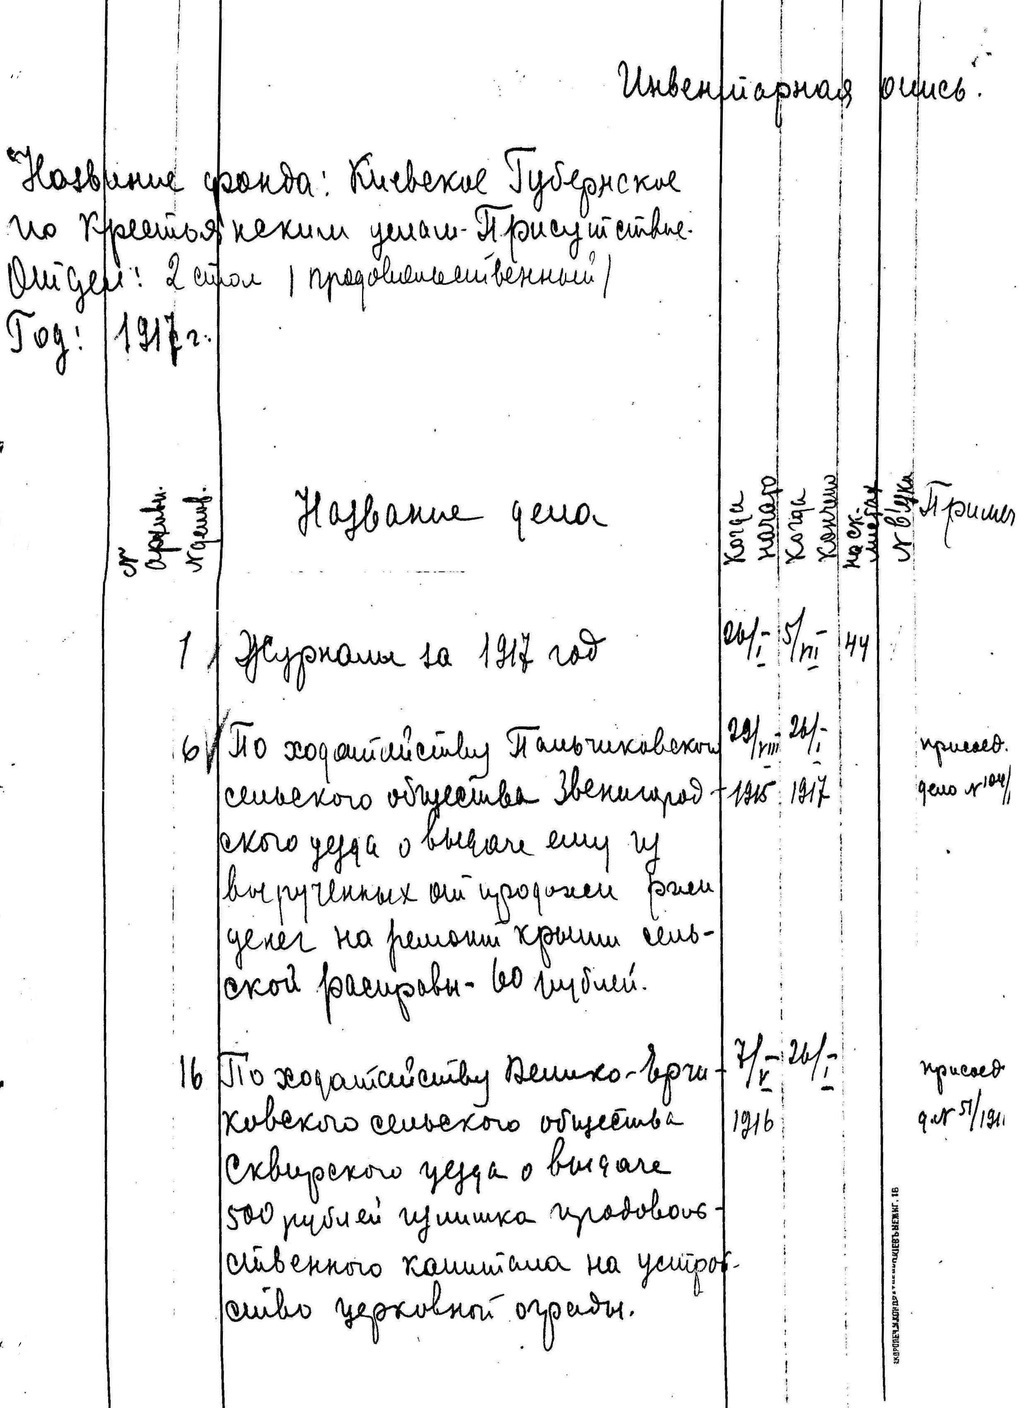 Инвентарная опись.
Название фонда: Киевское Губернское
по крестьянским делам Присутствие.
Отдел: 2 стол /продовольственный/
Год: 1917 г.
№ архивн.
№ делов.
Название дела
Когда начато
Когда кончено
на ск. листах
№ в'язка
Примеч
1 Журналы за 1917 год 26/I 5/VII 44
6 По ходатайству Пальчиковского 29/VIII 26/I присоед.
сельского общества Звенигород- 1915 1917 дело №
ского уезда о выдаче ему из
вырученных от продажи ржи
денег на ремонт крыши сель-
ской расправы- 60 рублей.
16 По ходатайству Велико- 7/V 26/I присоед
ковского сельского общества 1916 д.№ 51/191
Сквирского уезда о выдаче
500 рублей излишка продоволь-
ственного капитала на устрой-
ство церковной ограды.